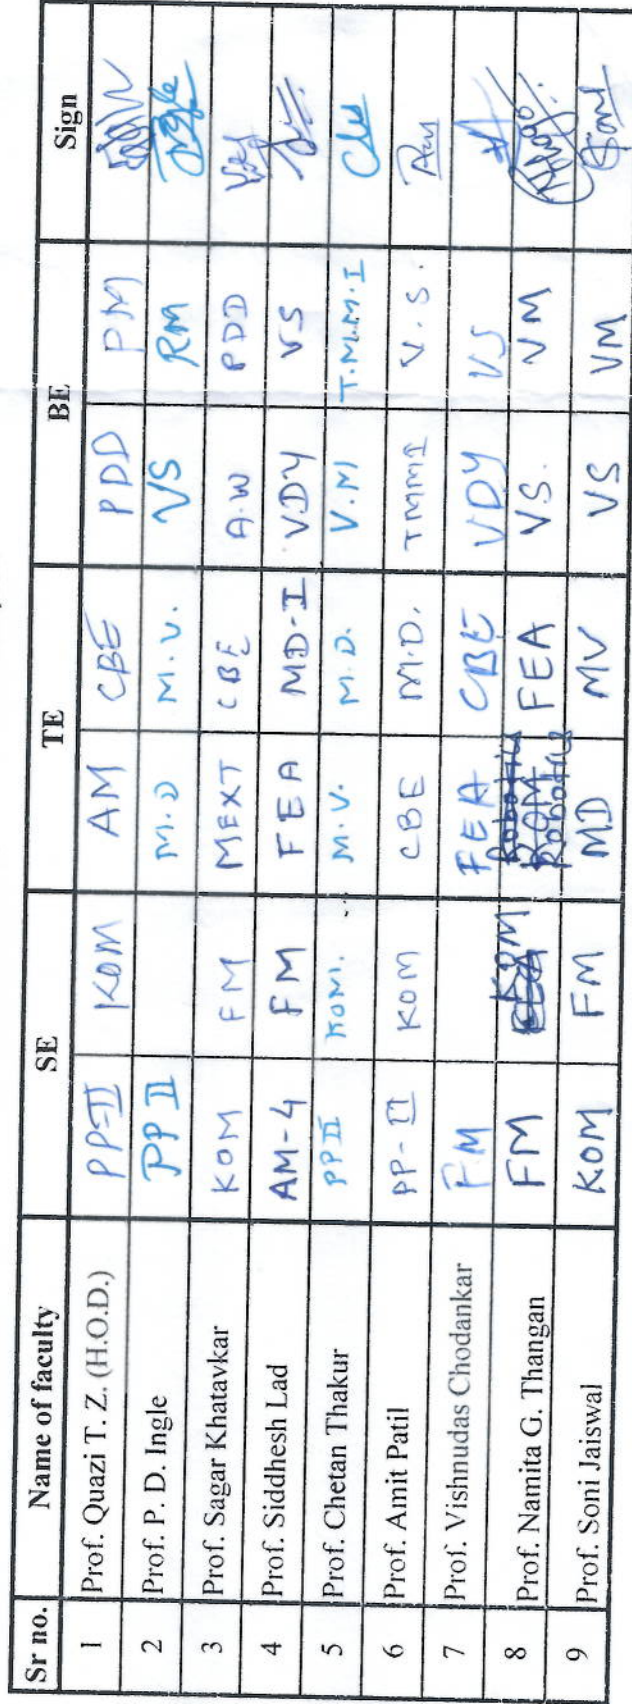 Sr no. Name of faculty SE TE BE Sign
1 Prof. Quazi T. Z. (H.O.D.) PP-II KOM AM CBE PDD PM
2 Prof. P. D. Ingle PP II M.D M.V. VS RM Ingle
3 Prof. Sagar Khatavkar KOM FM MEXT CBE A.W PDD
4 Prof. Siddhesh Lad AM-4 FM FEA MD-I VDY VS
5 Prof. Chetan Thakur PPII KOM. M.V. M.D. V.M T.M.M.I
6 Prof. Amit Patil PP-II KOM CBE M.D. TMMI V.S.
7 Prof. Vishnudas Chodankar F.M FEA CBE VDY VS
8 Prof. Namita G. Thangan FM KOM Robotics FEA VS. VM
9 Prof. Soni Jaiswal KOM FM MD MV VS VM